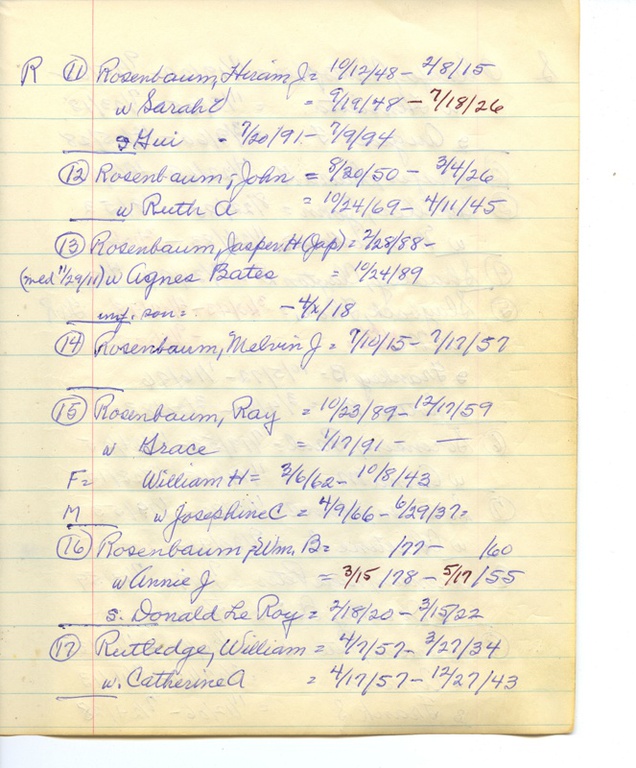 R (11) Rosenbaum, Hiram J = 10/12/48 - 2/8/15
w Sarah E = 9/19/48 - 7/18/26
s Gui - 7/20/91 - 7/9/94
(12) Rosenbaum, John = 8/20/50 - 3/4/26
w Ruth A = 10/24/69 - 4/11/45
(13) Rosenbaum, Jasper H (Jap) = 2/28/88 -
(med 11/29/11) w Agnes Bates = 10/24/89
inf. son = - 4/x/18
(14) Rosenbaum, Melvin J = 7/10/15 - 7/17/57
(15) Rosenbaum, Ray = 10/23/89 - 12/17/59
w Grace = 1/17/91 - —
F = William H = 3/6/62 - 10/8/43
M w Josephine C = 4/9/66 - 6/29/37 =
(16) Rosenbaum, Wm, B = /77 - /60
w Annie J = 3/15/78 - 5/17/55
s. Donald Le Roy = 2/18/20 - 3/15/22
(17) Rutledge, William = 4/7/57 - 3/27/34
w. Catherine A = 4/17/57 - 12/27/43